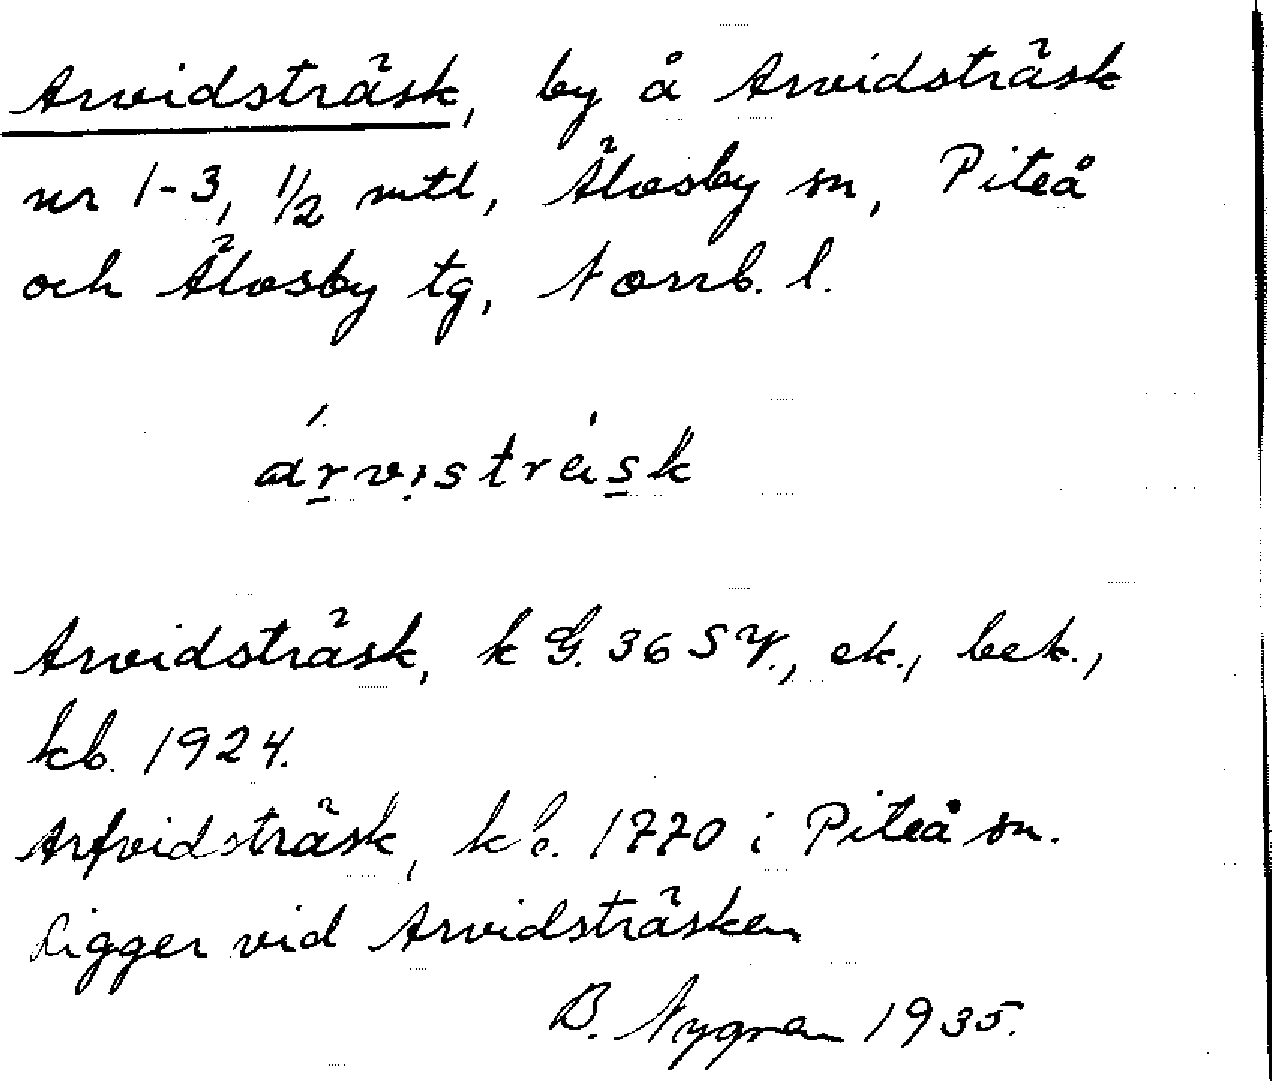 Arvidsträsk, by å Arvidsträsk
nr 1-3, 1/2 mtl, Älvsby sn, Piteå
och Älvsby tg, Norrb. l.
árvistrèisk
Arvidsträsk, k G. 36 SV., ek., bek.,
kb. 1924.
Arfvidsträsk, kb. 1770 i Piteå sn.
Ligger vid Arvidsträsken
B. Nygren 1935.